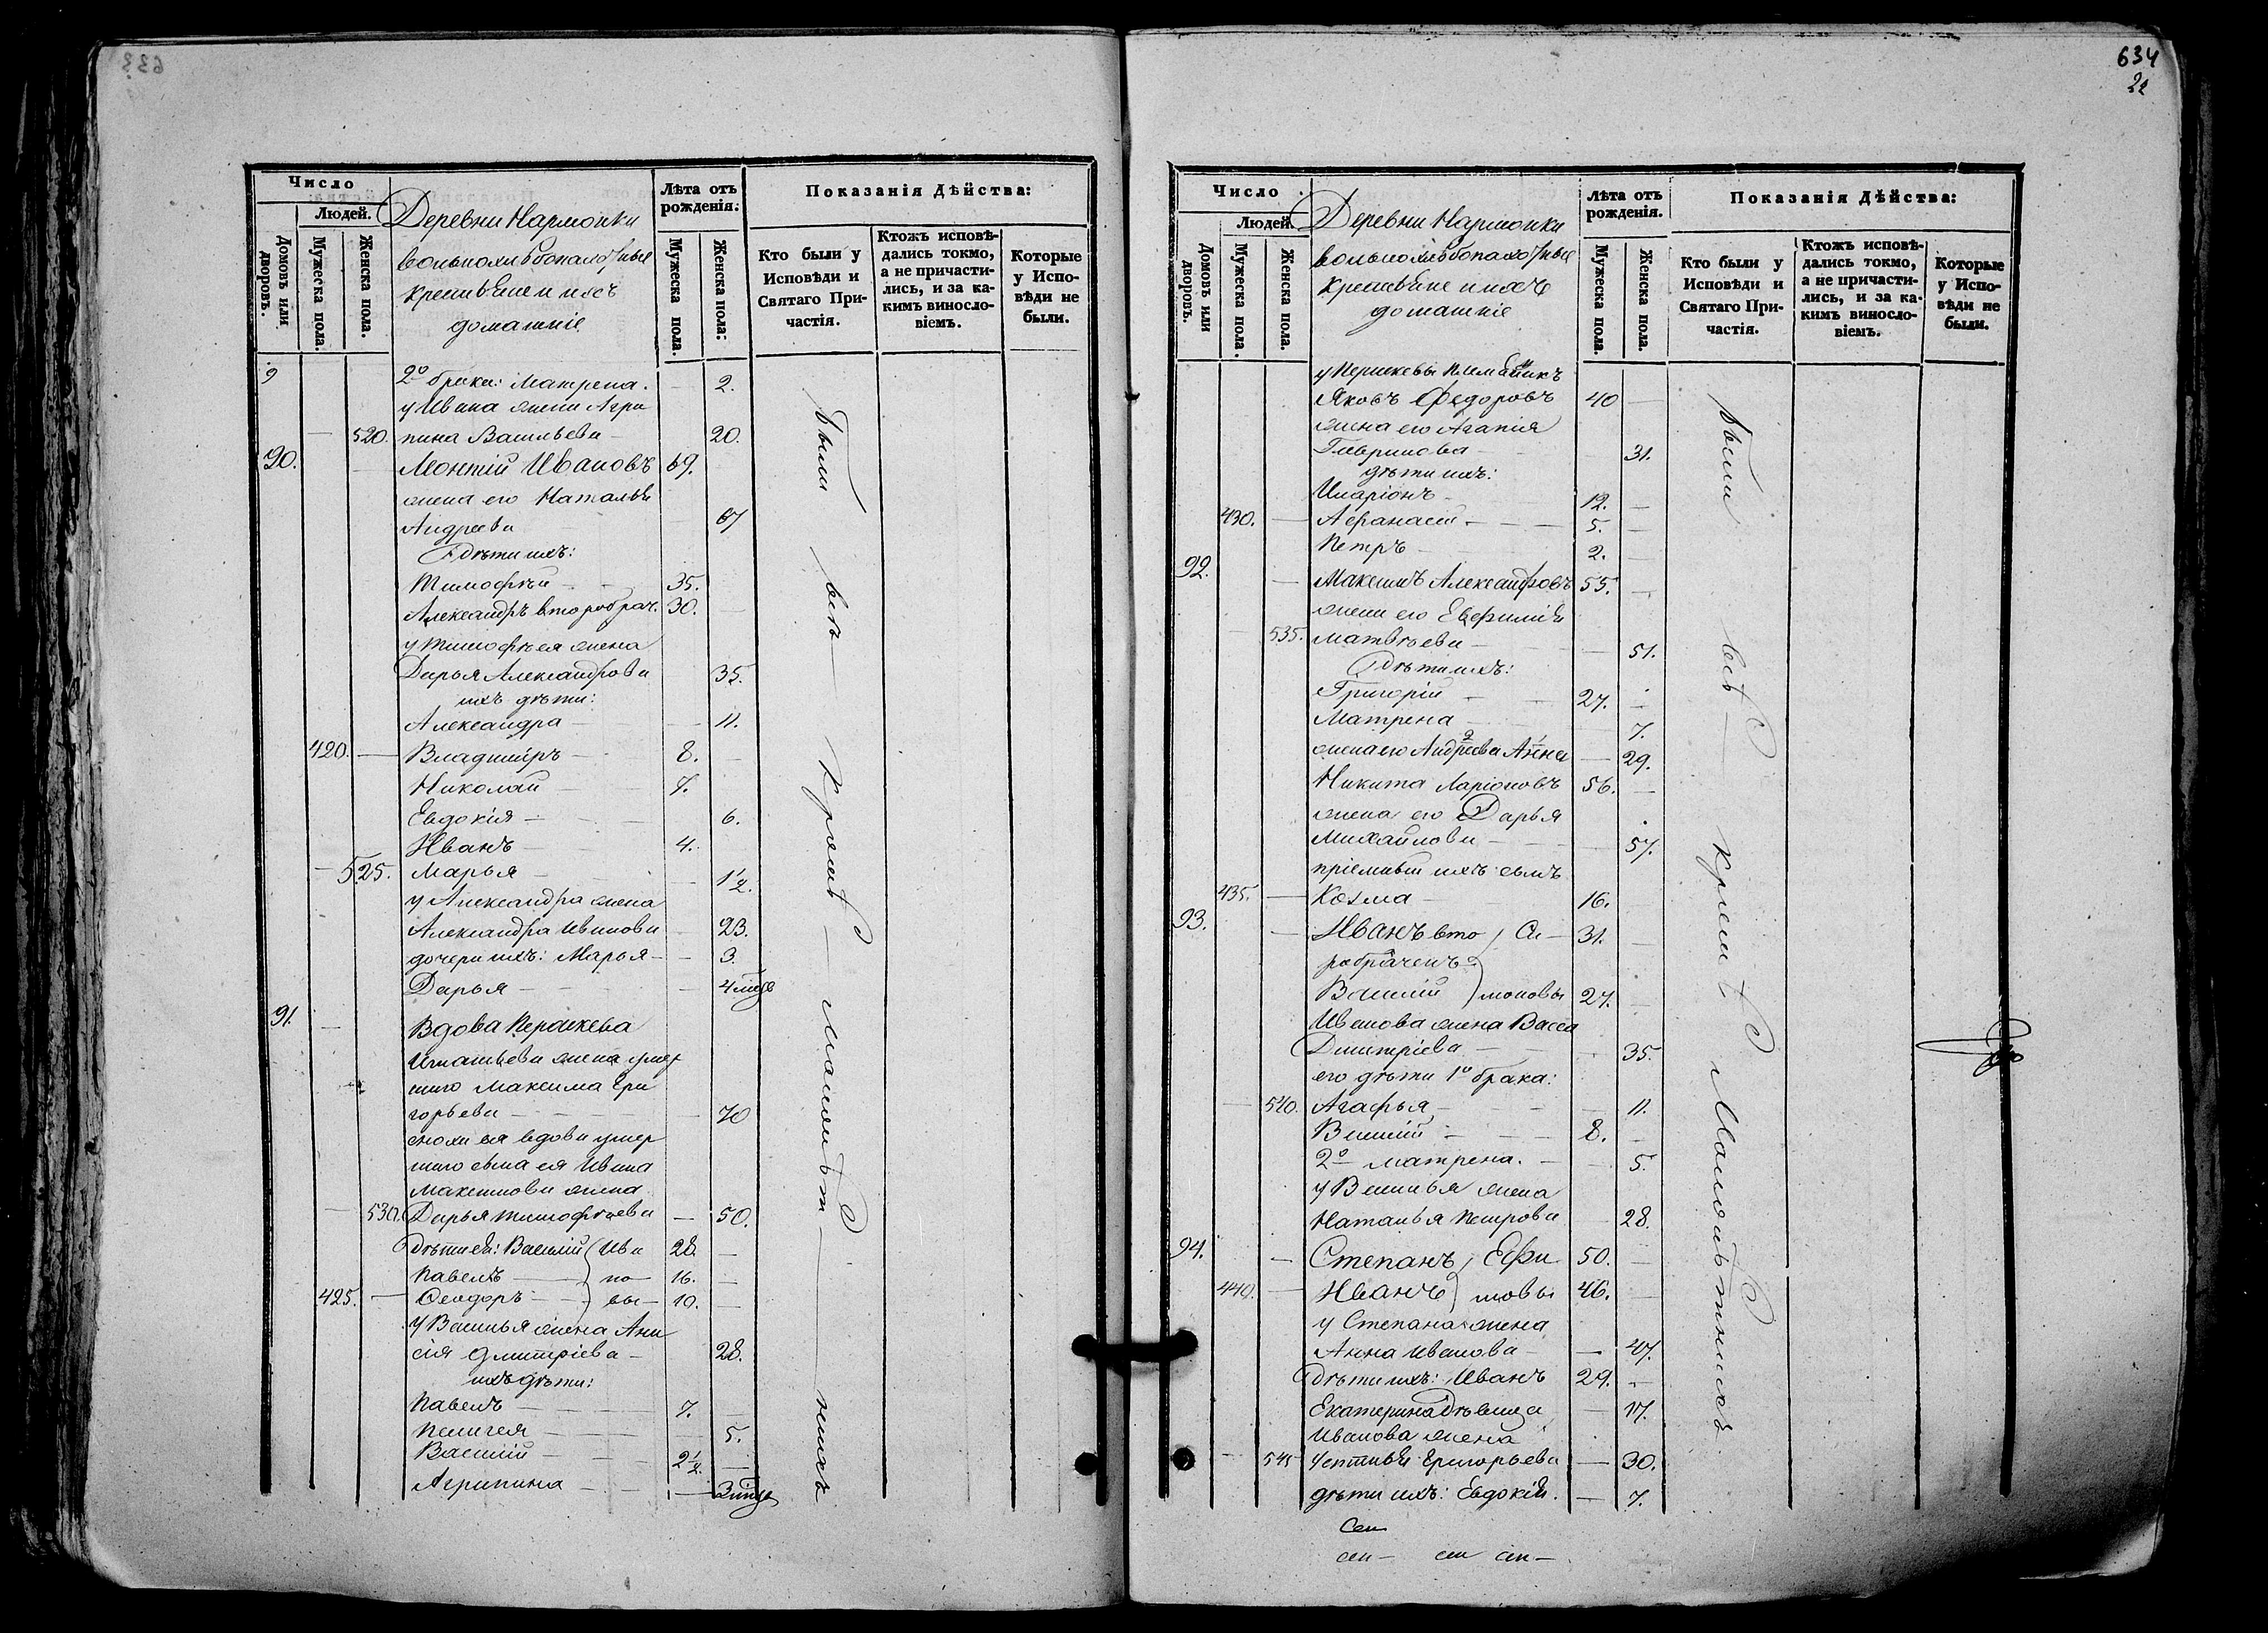 633
Число
Людей.
Домовъ или дворовъ.
Мужеска пола.
Женска пола.
Деревни Нармонки
вольнохлѣбопахотные
крестьяне и ихъ
домашніе
Лѣта отъ рожденія.
Мужеска пола.
Женска пола:
Показанія Дѣйства:
Кто были у Исповѣди и Святаго Причастія.
Ктожъ исповѣдались токмо, а не причастились, и за какимъ винословіемъ.
Которые у Исповѣди не были.
9 2º брака: Матрена. — 2.
у Ивана жена Агри
— 520. пина Васильева — 20.
90. Леонтій Ивановъ 69.
жена его Наталья
Андреева — 67
Дѣти ихъ:
Тимофѣй — 35.
Александръ второбрач. 30. —
у Тимофѣя жена
Дарья Александрова 35.
ихъ дѣти:
Александра — — 11.
420. — Владиміръ — 8. —
Николай — 7.
Евдокія — 6.
Иванъ — 4.
— 525. Марья — — 1½.
у Александра жена
Александра Иванова — 23.
дочери ихъ: Марья — — 3.
Дарья — — 4 мѣс
91. — Вдова Параскева
Игнатьева жена умер
шаго Максима Гри
горьева — — 70
снохи ея вдова умер
шаго сына ея Ивана
Максимова жена
— 530. Дарья Тимофѣева — 50.
Дѣти ея: Василій Ива 28. —
Павелъ — но — 16. —
425. — Ѳеодоръ — вы — 10. —
у Василья жена Ани
сія Дмитріева — 28.
ихъ дѣти:
Павелъ — 7. —
Пелагея — 5.
Василій — 2½. —
Агрипина — — 3 мѣс
были всѣ кромѣ — малолѣт — нихъ
634
22
Число
Людей.
Домовъ или дворовъ.
Мужеска пола.
Женска пола.
Деревни Нармонки
вольнохлѣбопахотные
крестьяне и ихъ
домашніе
Лѣта отъ рожденія.
Мужеска пола.
Женска пола.
Показанія Дѣйства:
Кто были у Исповѣди и Святаго Причастія.
Ктожъ исповѣдались токмо, а не причастились, и за какимъ винословіемъ.
Которые у Исповѣди не были.
у Параскевы племянникъ
Яковъ Ѳедоровъ 40 —
жена его Агапія
Гаврилова — — 31.
дѣти ихъ:
Иларіонъ — 12. —
430. — Афанасій — 5. —
Петръ — 2. —
92. — Максимъ Александровъ 55. —
жена его Евфимія
— 535. Матвѣева — — 51.
Дѣти ихъ:
Григорій — 27. —
Матрена — 7.
жена его Андреева Анна — 29.
Никита Ларіоновъ 56. —
жена его Дарья
Михайлова — 57.
пріемный ихъ сынъ
435. — Козма — 16.
93. — Иванъ вто Си — 31. —
робраченъ
Василій моновы 27. —
Иванова жена Васса
Дмитріева — 35.
его дѣти 1º брака:
— 540. Агафья — — 11.
Василій — 8. —
2º Матрена. — — 5.
у Василья жена
Наталья Петрова 28.
94. — Степанъ Ефи 50. —
440. — Иванъ мовы 46. —
у Степана жена
Анна Иванова — — 47.
Дѣти ихъ: Иванъ 29. —
Екатерина дѣвица — 17.
Иванова жена
— 545 Устинья Григорьева — 30.
дѣти ихъ: Евдокія. — 7.
были всѣ — кромѣ малолѣтнихъ